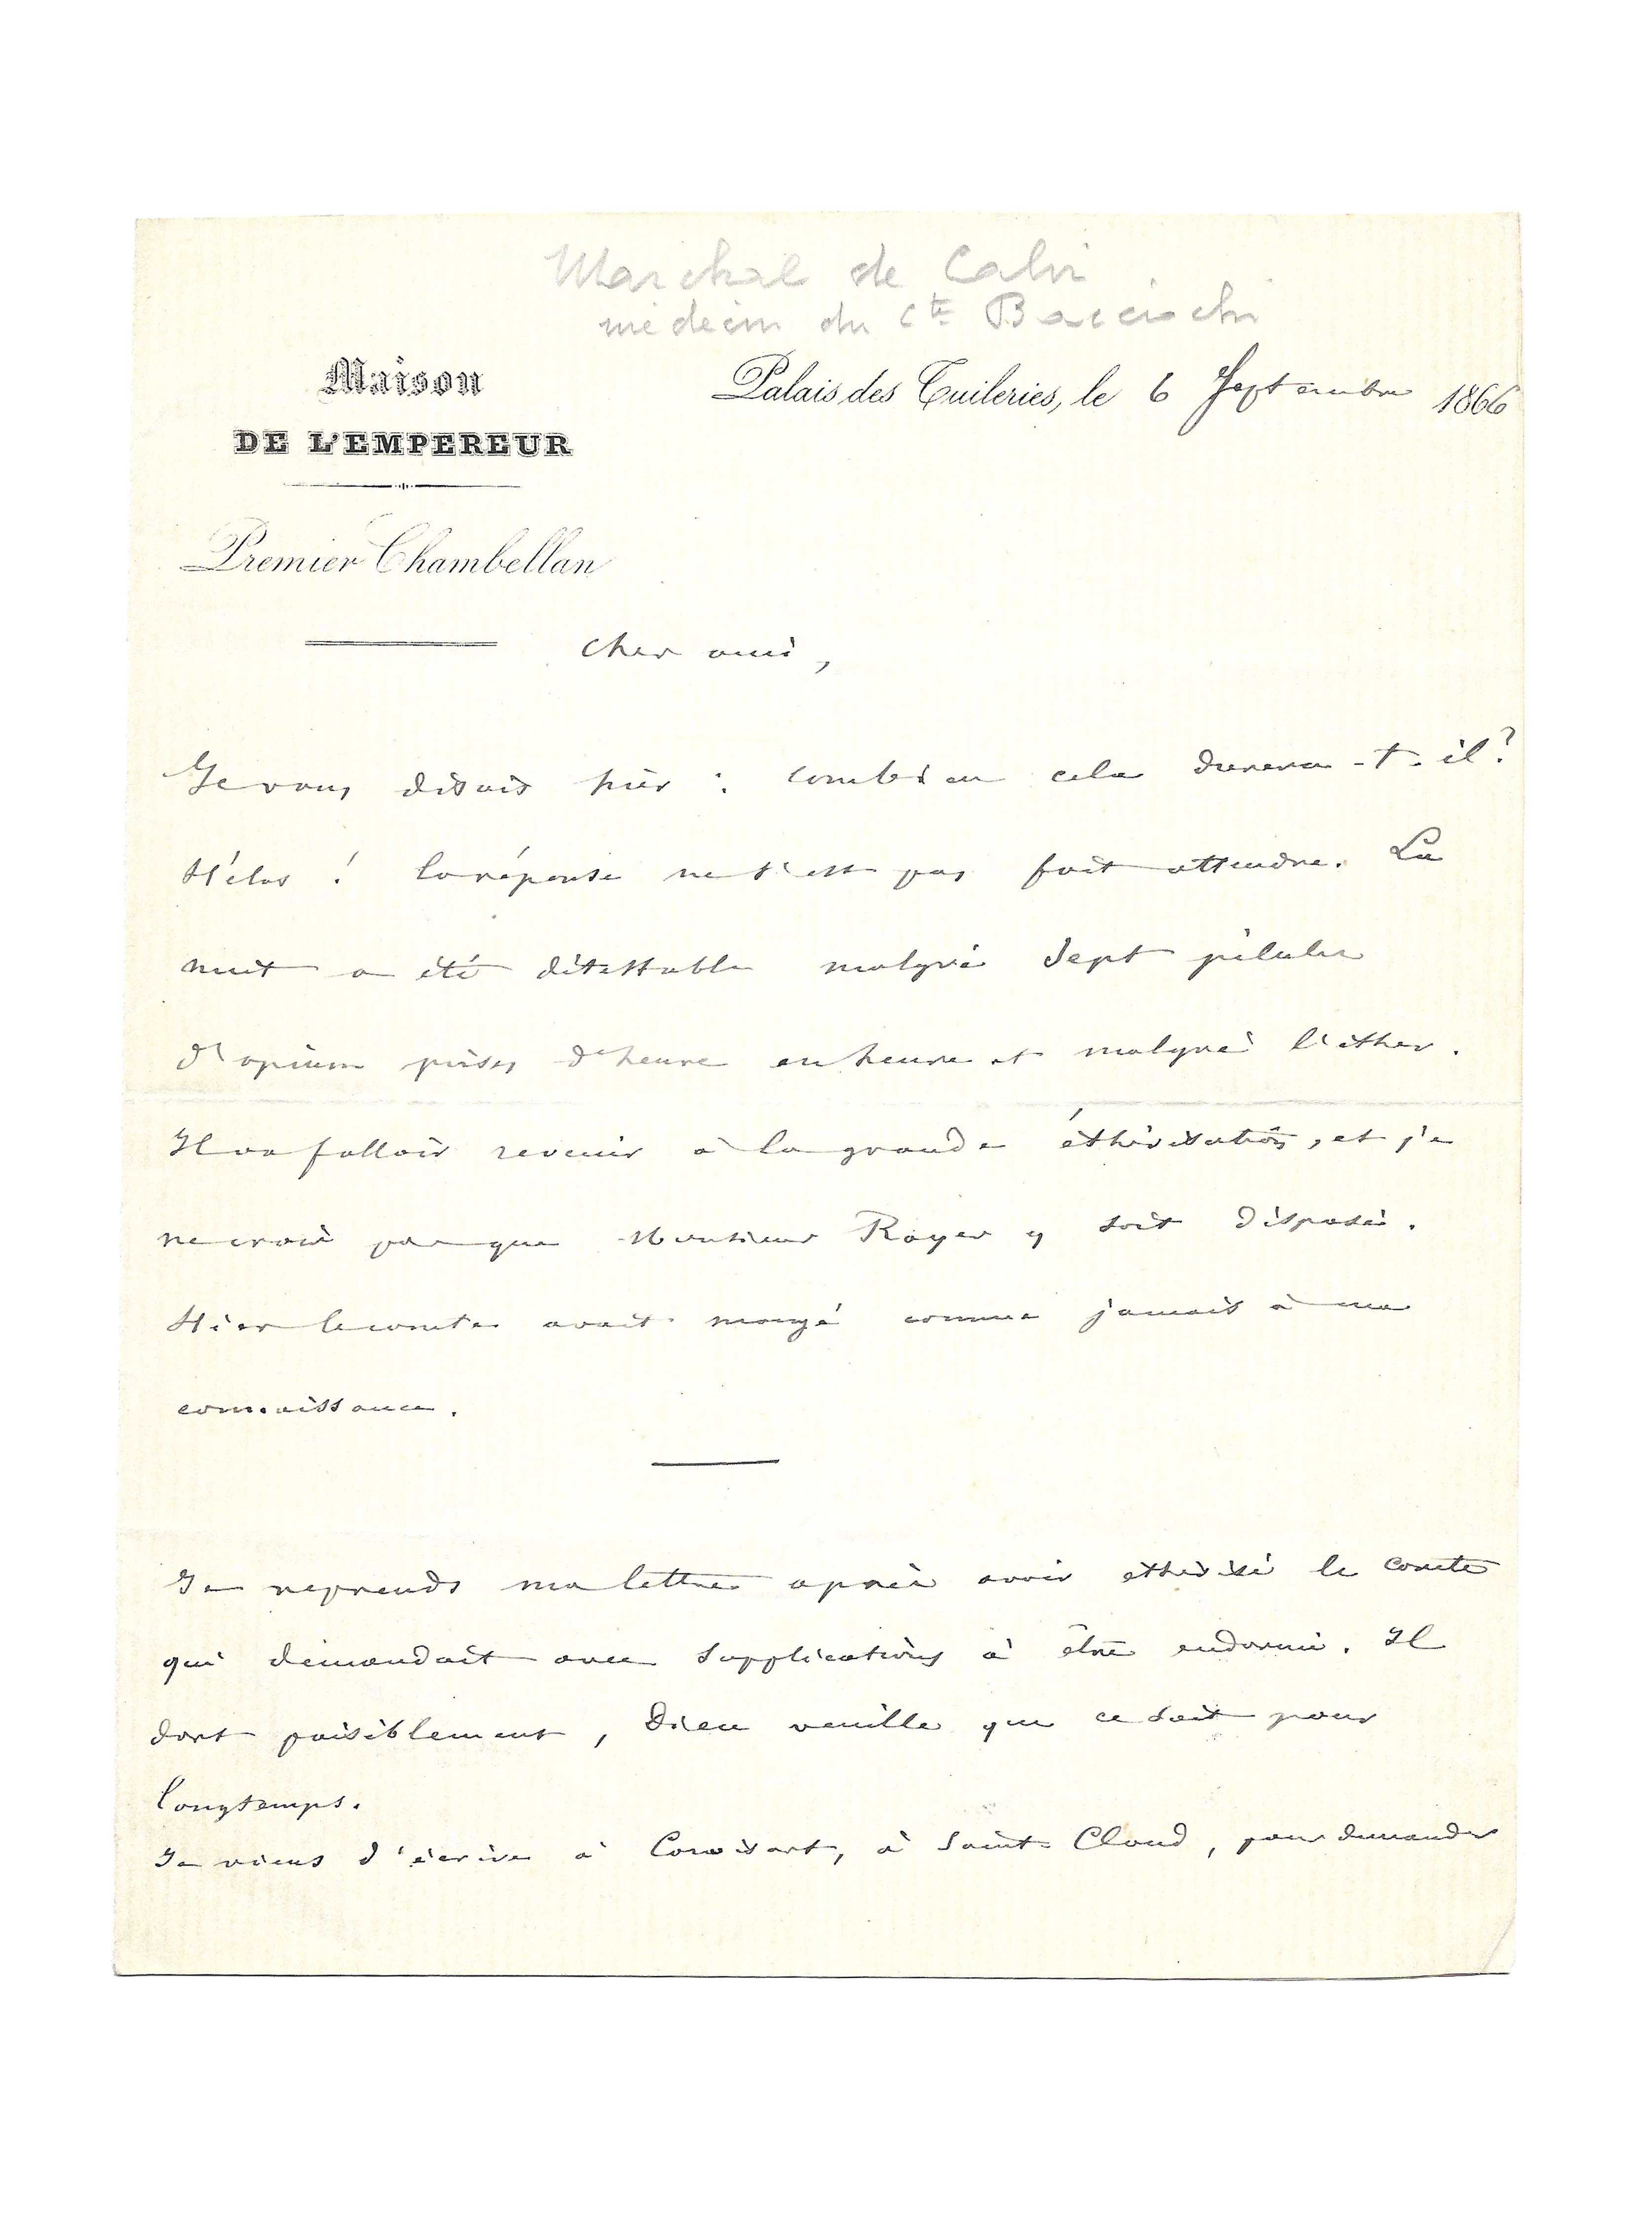 Marchal de Calvi
médecin du Cte Bacciochi
Maison
DE L'EMPEREUR
Palais des Tuileries, le 6 Septembre 1866
Premier Chambellan
Cher ami,
Je vous disais hier : combien cela durera-t-il ?
Hélas ! la réponse ne s'est pas fait attendre. La
nuit a été détestable malgré sept pilules
d'opium prises d'heure en heure et malgré l'éther.
Il va falloir revenir à la grande éthérisation, et je
ne crois pas que Monsieur Rayer y soit disposé.
Hier le comte avait mangé comme jamais à ma
connaissance.
Je reprends ma lettre après avoir éthérisé le comte
qui demandait avec supplications à être endormi. Il
dort paisiblement, Dieu veuille que ce soit pour
longtemps.
Je viens d'écrire à Corvisart, à Saint-Cloud, pour demander